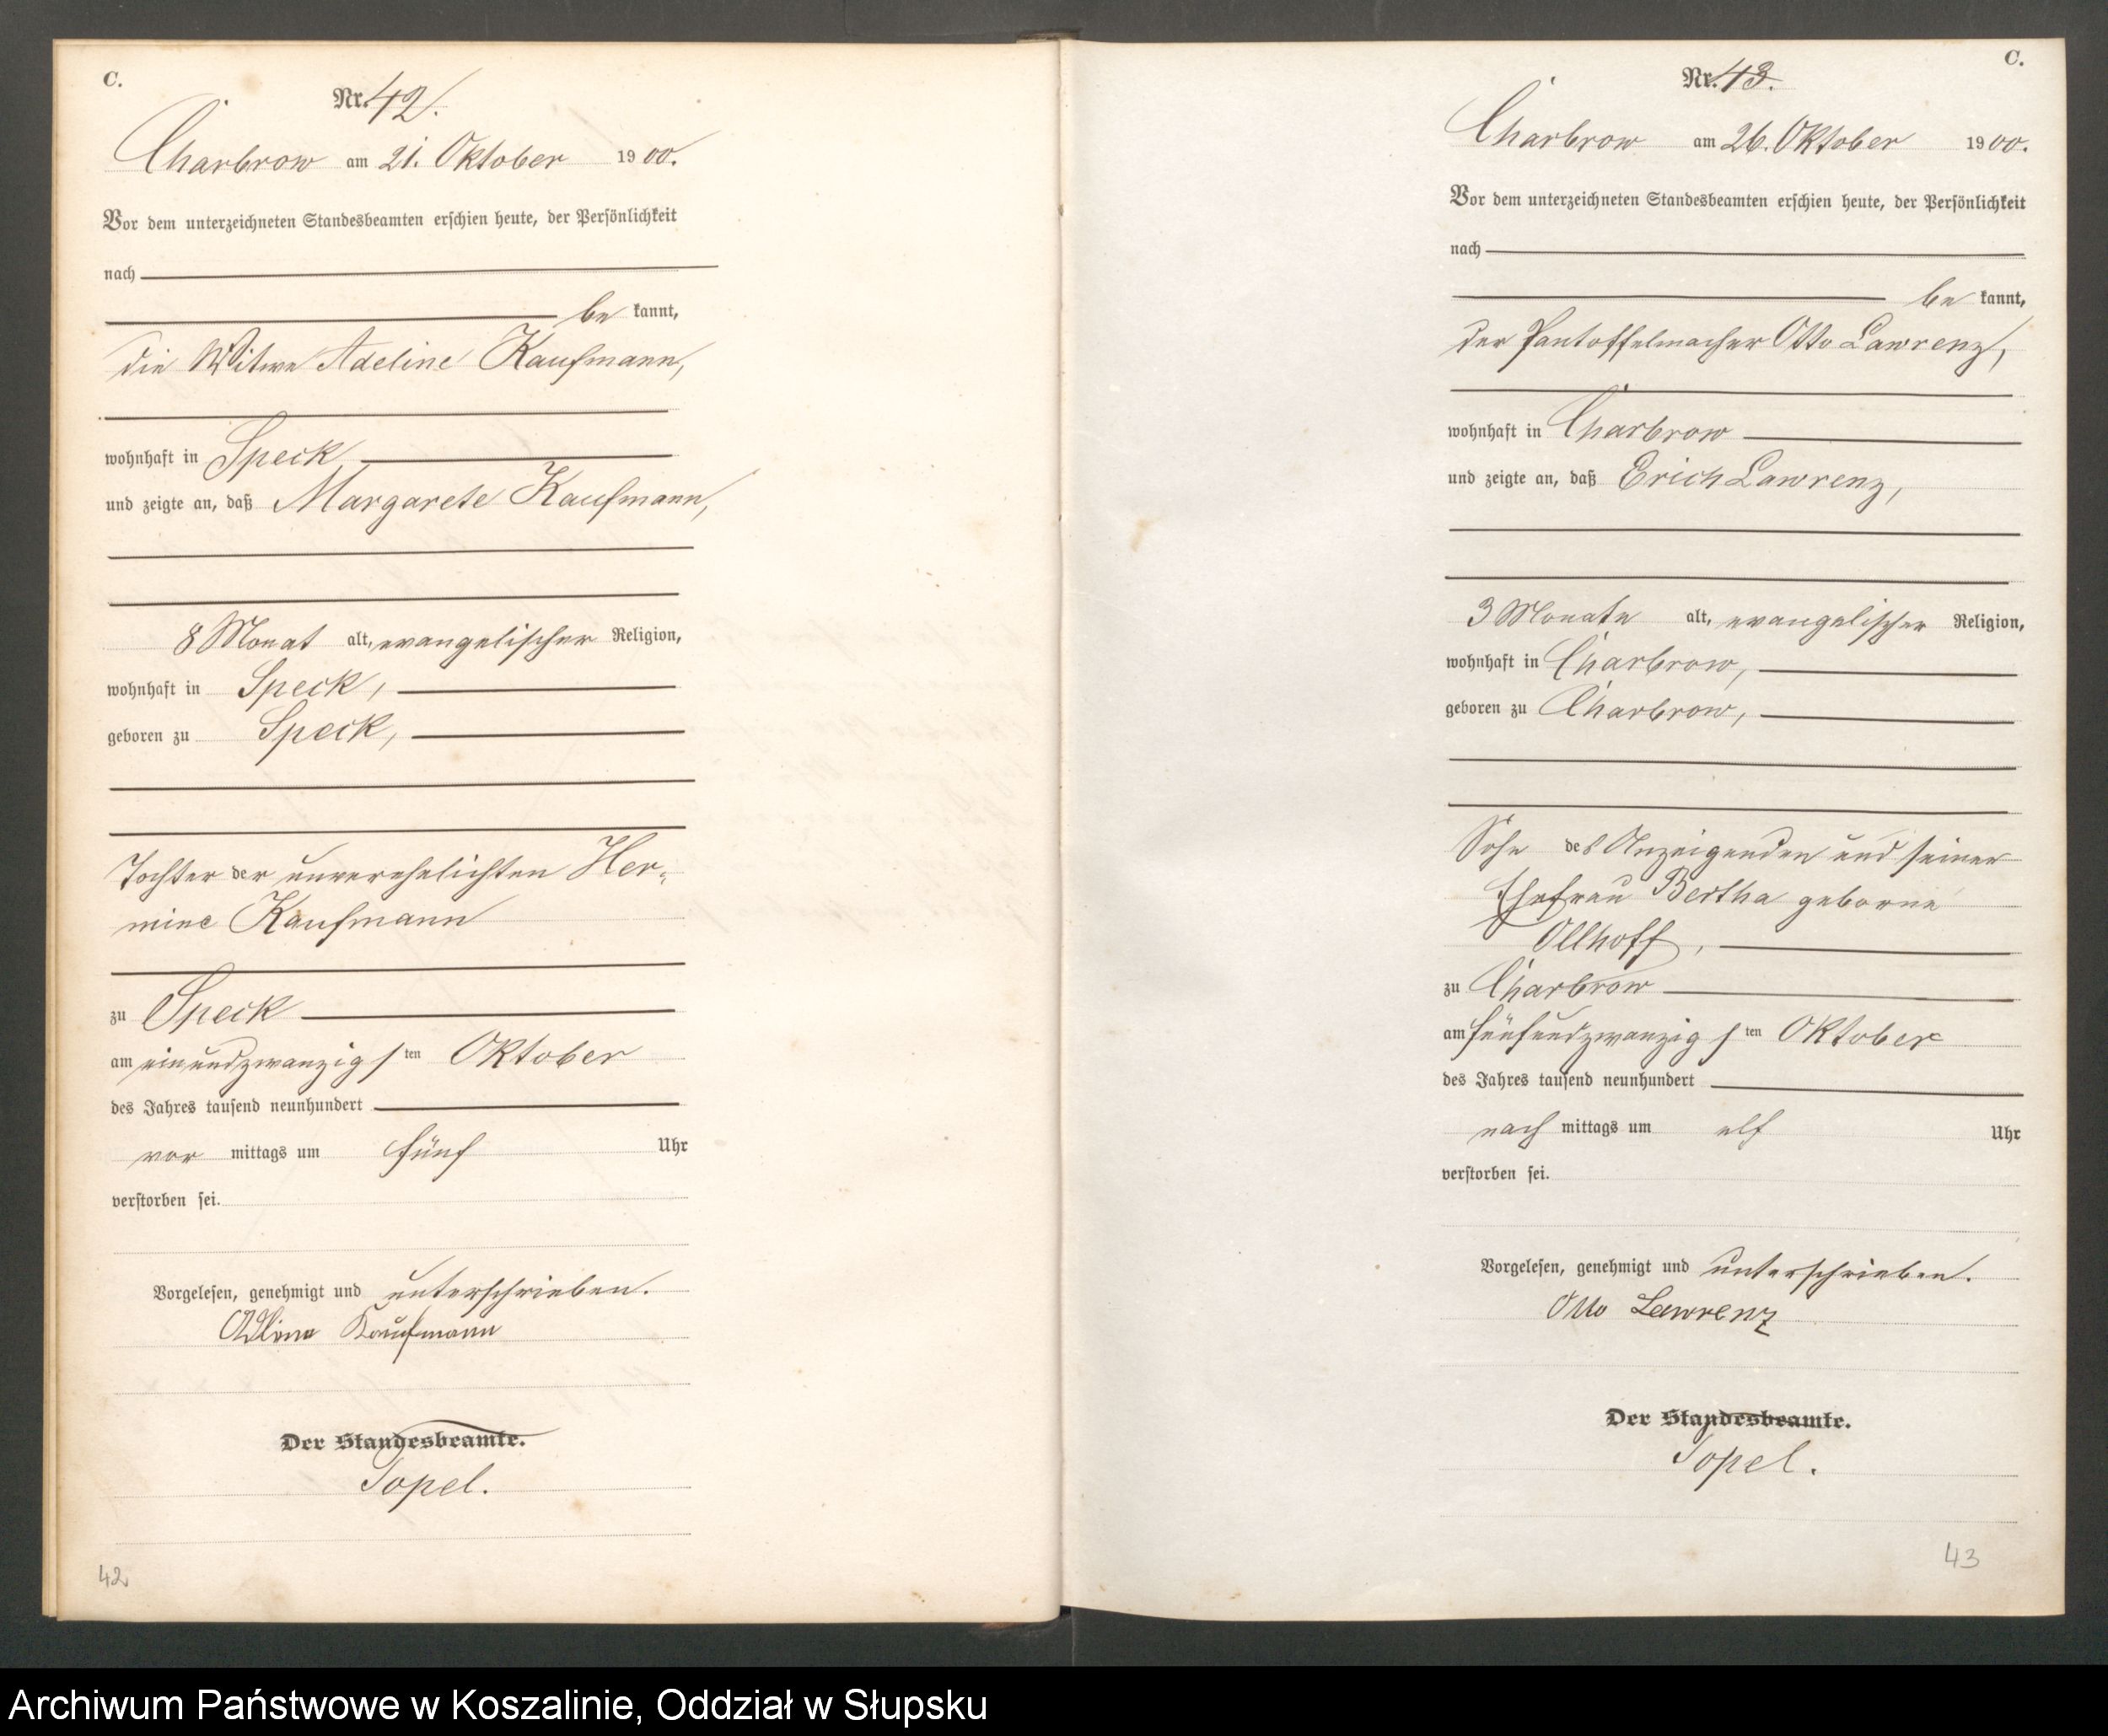 C.
Nr. 42.
Charbrow am 21. Oktober 1900.
Vor dem unterzeichneten Standesbeamten erschien heute, der Persönlichkeit
nach
be kannt,
die Witwe Adeline Kaufmann,
wohnhaft in Speck
und zeigte an, daß Margarete Kaufmann,
8 Monat alt, evangelischer Religion,
wohnhaft in Speck,
geboren zu Speck,
Tochter der unverehelichten Her-
mine Kaufmann
zu Speck
am einundzwanzigsten Oktober
des Jahres tausend neunhundert
vor mittags um fünf Uhr
verstorben sei.
Vorgelesen, genehmigt und unterschrieben.
Adline Kaufmann
Der Standesbeamte.
Sopel.
42
C.
Nr. 43.
Charbrow am 26. Oktober 1900.
Vor dem unterzeichneten Standesbeamten erschien heute, der Persönlichkeit
nach
be kannt,
der Pantoffelmacher Otto Lawrenz,
wohnhaft in Charbrow
und zeigte an, daß Erich Lawrenz,
3 Monate alt, evangelischer Religion,
wohnhaft in Charbrow,
geboren zu Charbrow,
Sohn des Anzeigenden und seiner
Ehefrau Bertha geborne
Ollhoff,
zu Charbrow
am fünfundzwanzigsten Oktober
des Jahres tausend neunhundert
nach mittags um elf Uhr
verstorben sei.
Vorgelesen, genehmigt und unterschrieben.
Otto Lawrenz
Der Standesbeamte.
Sopel.
43
Archiwum Państwowe w Koszalinie, Oddział w Słupsku